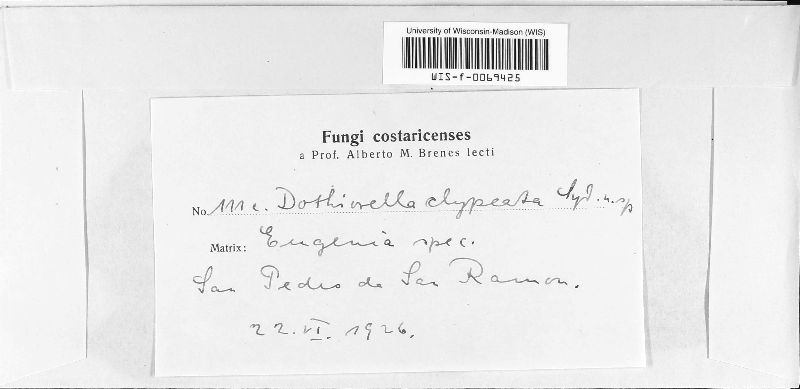 University of Wisconsin-Madison (WIS)
WIS-f-0069425
Fungi costaricenses
a Prof. Alberto M. Brenes lecti
No. 111c. Dothiorella clypeata Syd. n. sp
Matrix: Eugenia spec.
San Pedro de San Ramon.
22. VI. 1926.